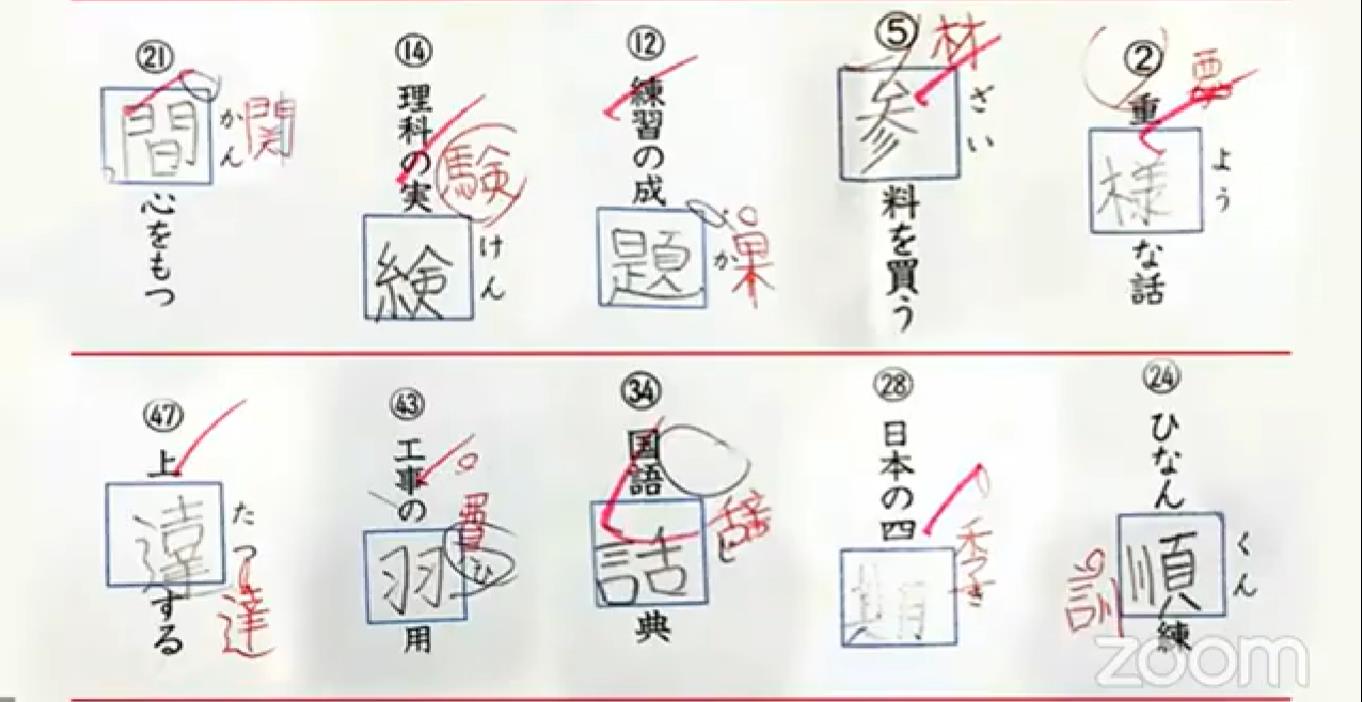 ②
重様な話
よう
要
⑤
参料を買う
ざい
材
⑫
練習の成題
か
果
⑭
理科の実
けん
験
㉑
間心をもつ
かん
関
㉔
ひなん順練
くん
訓
㉘
日本の四期
き
㉞
国語話典
じ
辞
㊸
工事の羽用
ひ
費
㊼
上
する
たつ
達
zoom